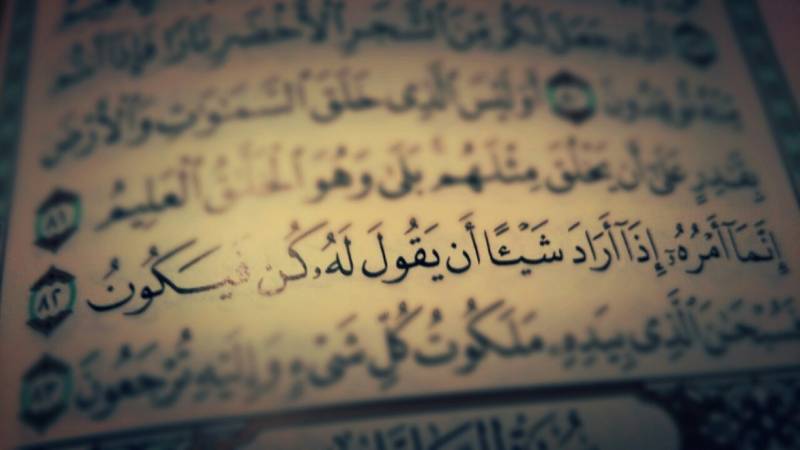 ٱلَّذِى جَعَلَ لَكُم مِّنَ ٱلشَّجَرِ ٱلْأَخْضَرِ نَارًا فَإِذَآ أَنتُم
مِّنْهُ تُوقِدُونَ ٨٠ أَوَلَيْسَ ٱلَّذِى خَلَقَ ٱلسَّمَٰوَٰتِ وَٱلْأَرْضَ
بِقَٰدِرٍ عَلَىٰٓ أَن يَخْلُقَ مِثْلَهُم بَلَىٰ وَهُوَ ٱلْخَلَّٰقُ ٱلْعَلِيمُ ٨١
إِنَّمَآ أَمْرُهُۥٓ إِذَآ أَرَادَ شَيْـًٔا أَن يَقُولَ لَهُۥ كُن فَيَكُونُ ٨٢
فَسُبْحَٰنَ ٱلَّذِى بِيَدِهِۦ مَلَكُوتُ كُلِّ شَىْءٍ وَإِلَيْهِ تُرْجَعُونَ ٨٣